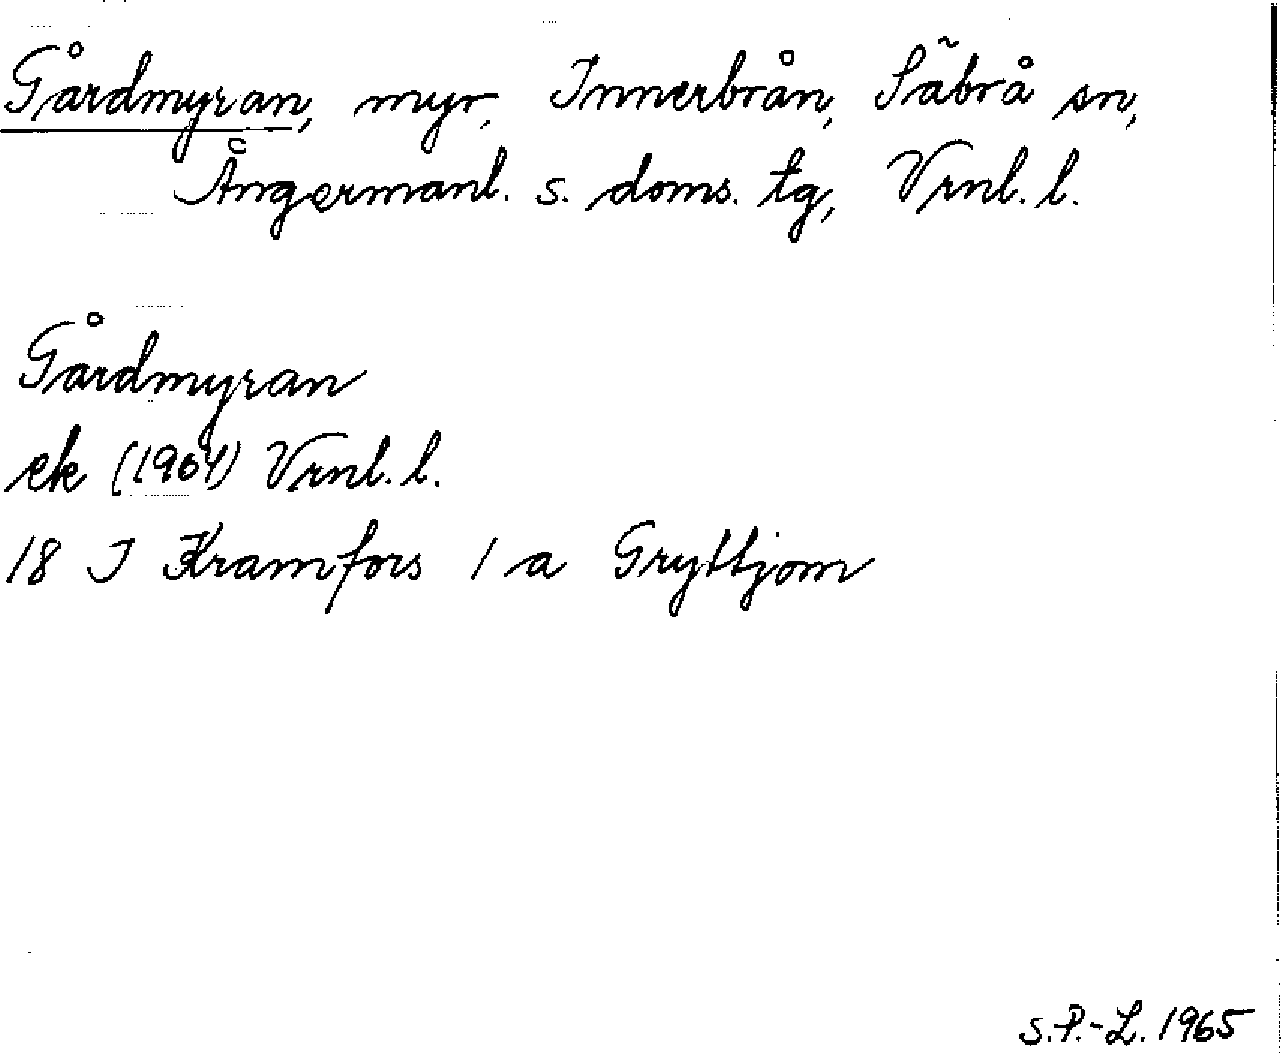 Gårdmyran, myr, Innerbrån, Säbrå sn,
Ångermanl. s. doms. tg, Vrnl. l.
Gårdmyran
ek (1964) Vrnl. l.
18 I Kramfors 1 a Gryttjom
S.P.-L. 1965